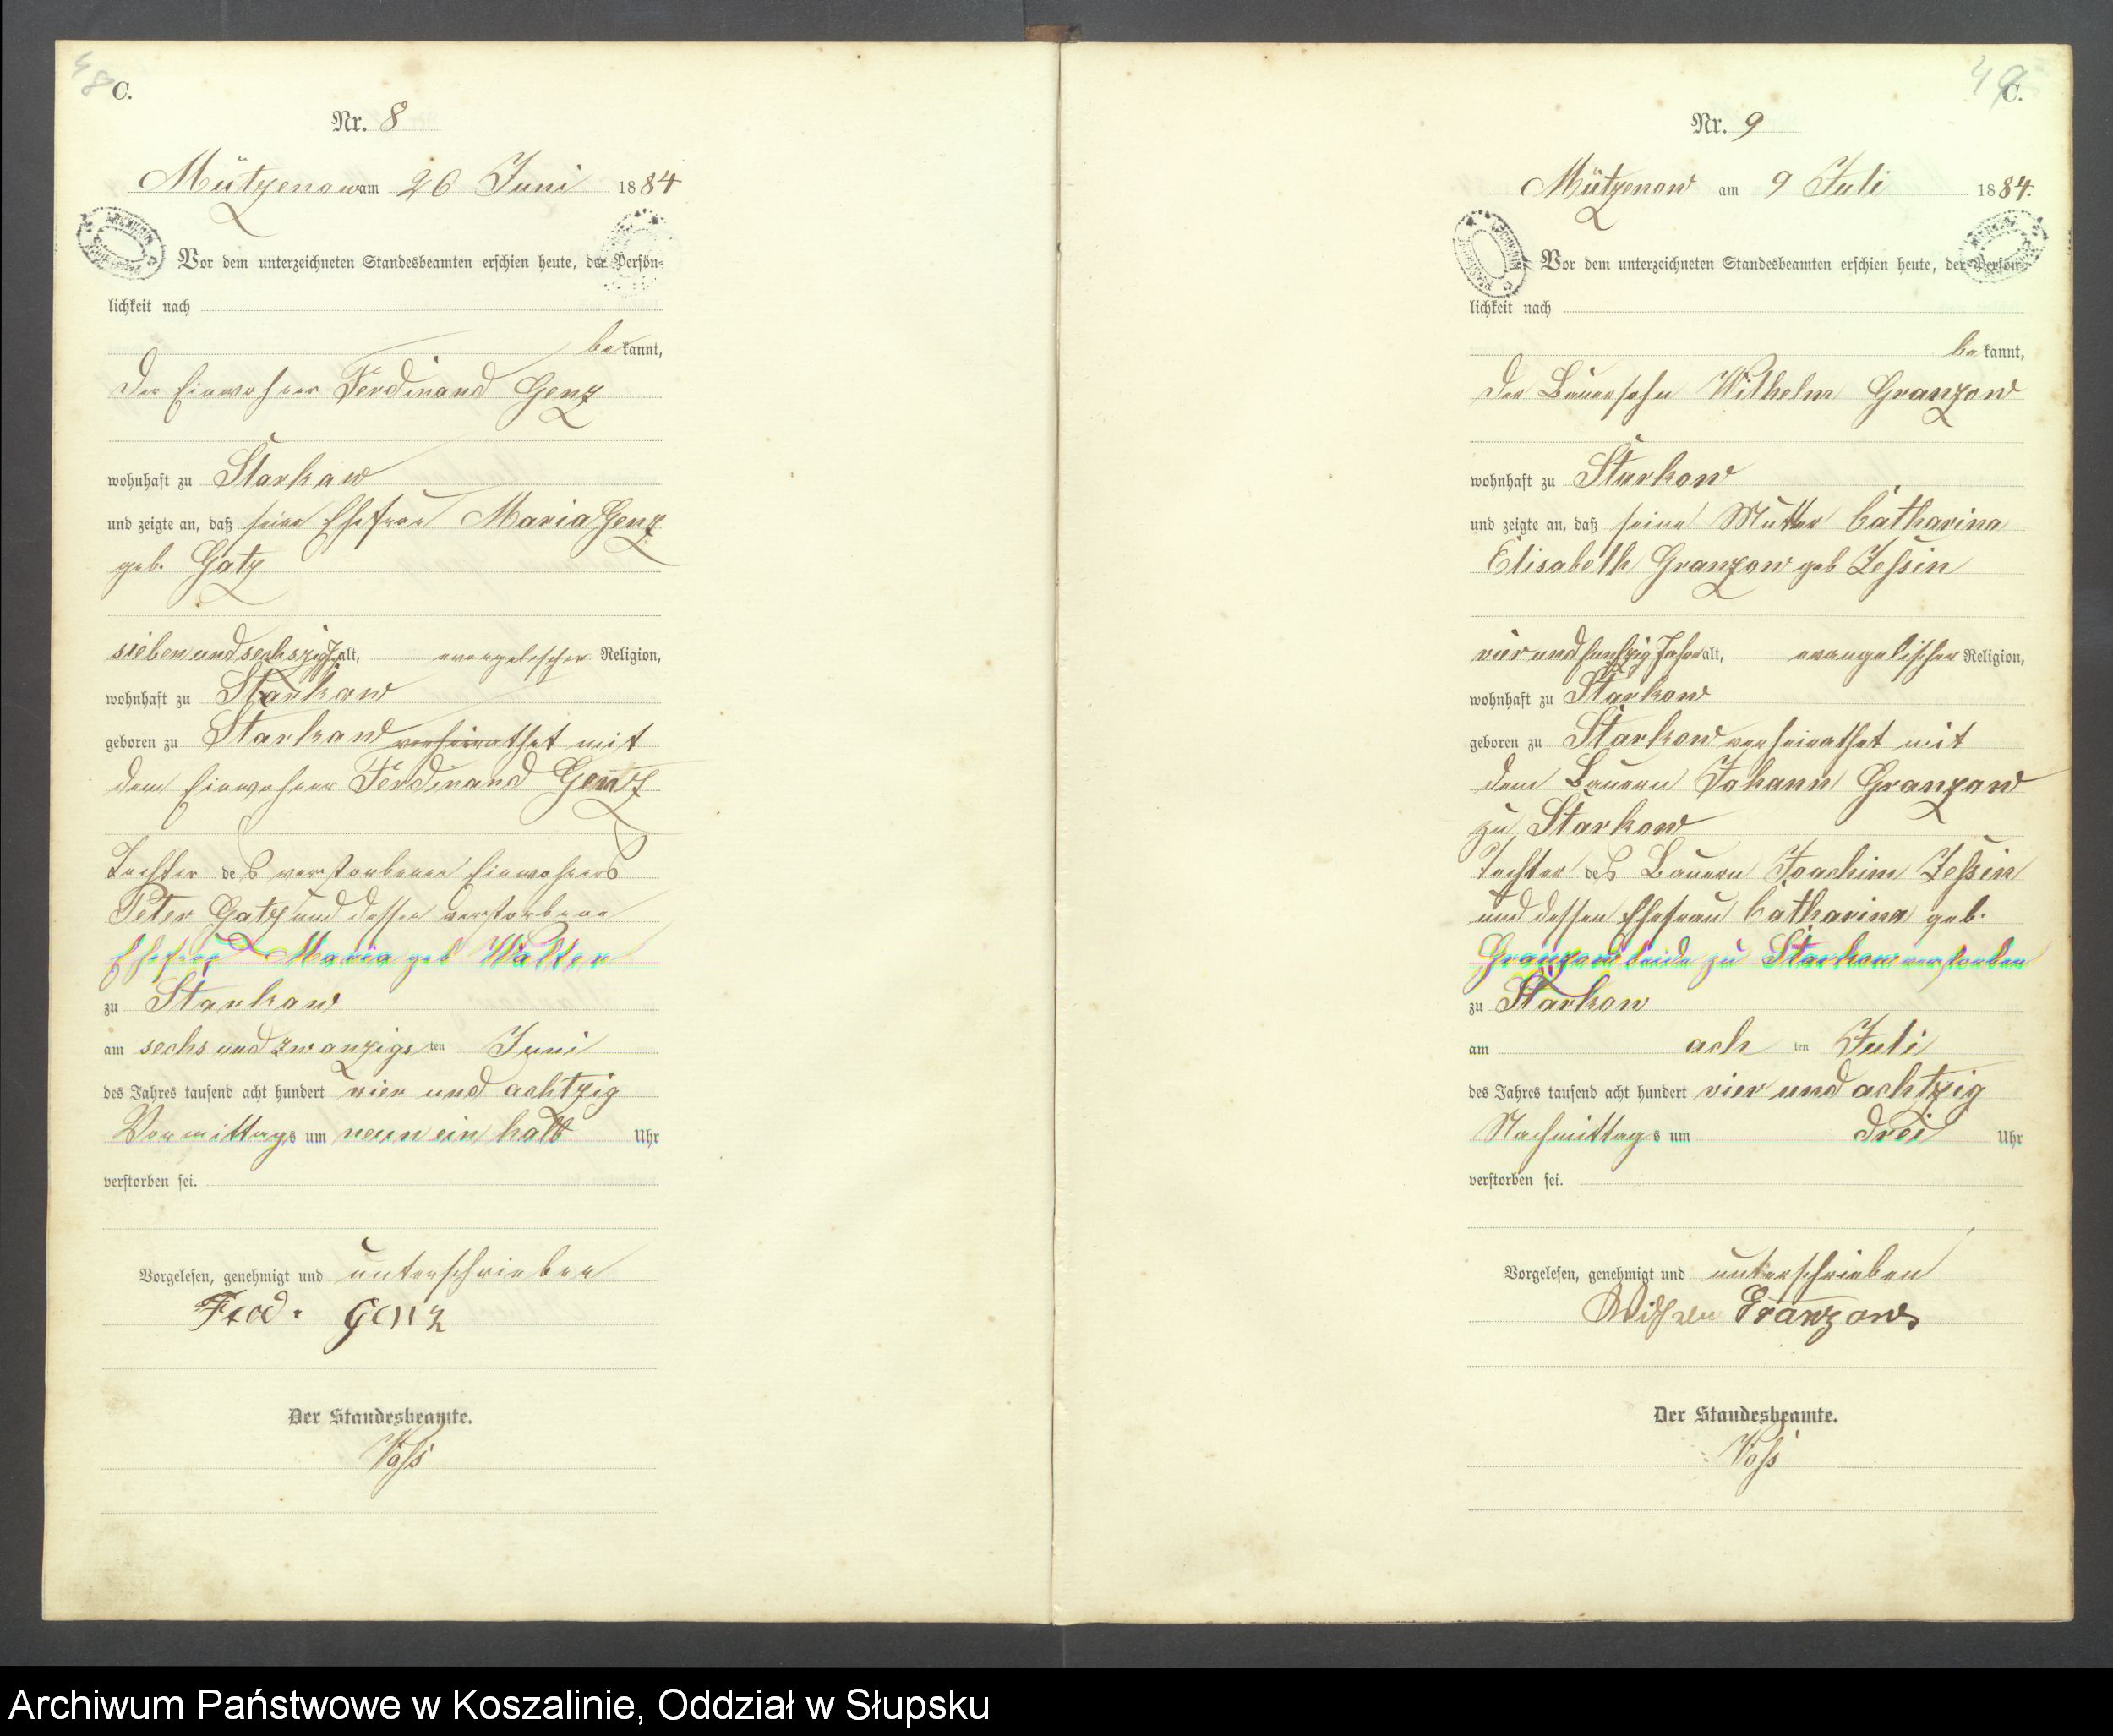 48
C.
Nr. 8
Mützenow am 26 Juni 1884
Vor dem unterzeichneten Standesbeamten erschien heute, der Persön-
lichkeit nach
bekannt,
der Einwohner Ferdinand Genz
wohnhaft zu Starkow
und zeigte an, daß seine Ehefrau Maria Genz
geb. Gatz
siebenundsechszig J. alt, evangelischer Religion,
wohnhaft zu Starkow
geboren zu Starkow verheirathet mit
dem Einwohner Ferdinand Genz
Tochter des verstorbenen Einwohners
Peter Gatz und dessen verstorbene
Ehefrau Maria geb Walter
zu Starkow
am sechs und zwanzigsten Juni
des Jahres tausend acht hundert vier und achtzig
Vormittags um neun ein halb Uhr
verstorben sei.
Vorgelesen, genehmigt und unterschrieben
Ferd. Genz
Der Standesbeamte.
Voß
49
C.
Nr. 9
Mützenow am 9 Juli 1884.
Vor dem unterzeichneten Standesbeamten erschien heute, der Persön-
lichkeit nach
bekannt,
der Bauersohn Wilhelm Granzow
wohnhaft zu Starkow
und zeigte an, daß seine Mutter Catharina
Elisabeth Granzow geb Zessin
vierundfunfzig Jahre alt, evangelischer Religion,
wohnhaft zu Starkow
geboren zu Starkow verheirathet mit
dem Bauern Johann Granzow
zu Starkow
Tochter des Bauern Joachim Zessin
und dessen Ehefrau Catharina geb.
Granzow beide zu Starkow verstorben
zu Starkow
am achten Juli
des Jahres tausend acht hundert vier und achtzig
Nachmittags um drei Uhr
verstorben sei.
Vorgelesen, genehmigt und unterschrieben
Wilhelm Granzow
Der Standesbeamte.
Voß
Archiwum Państwowe w Koszalinie, Oddział w Słupsku